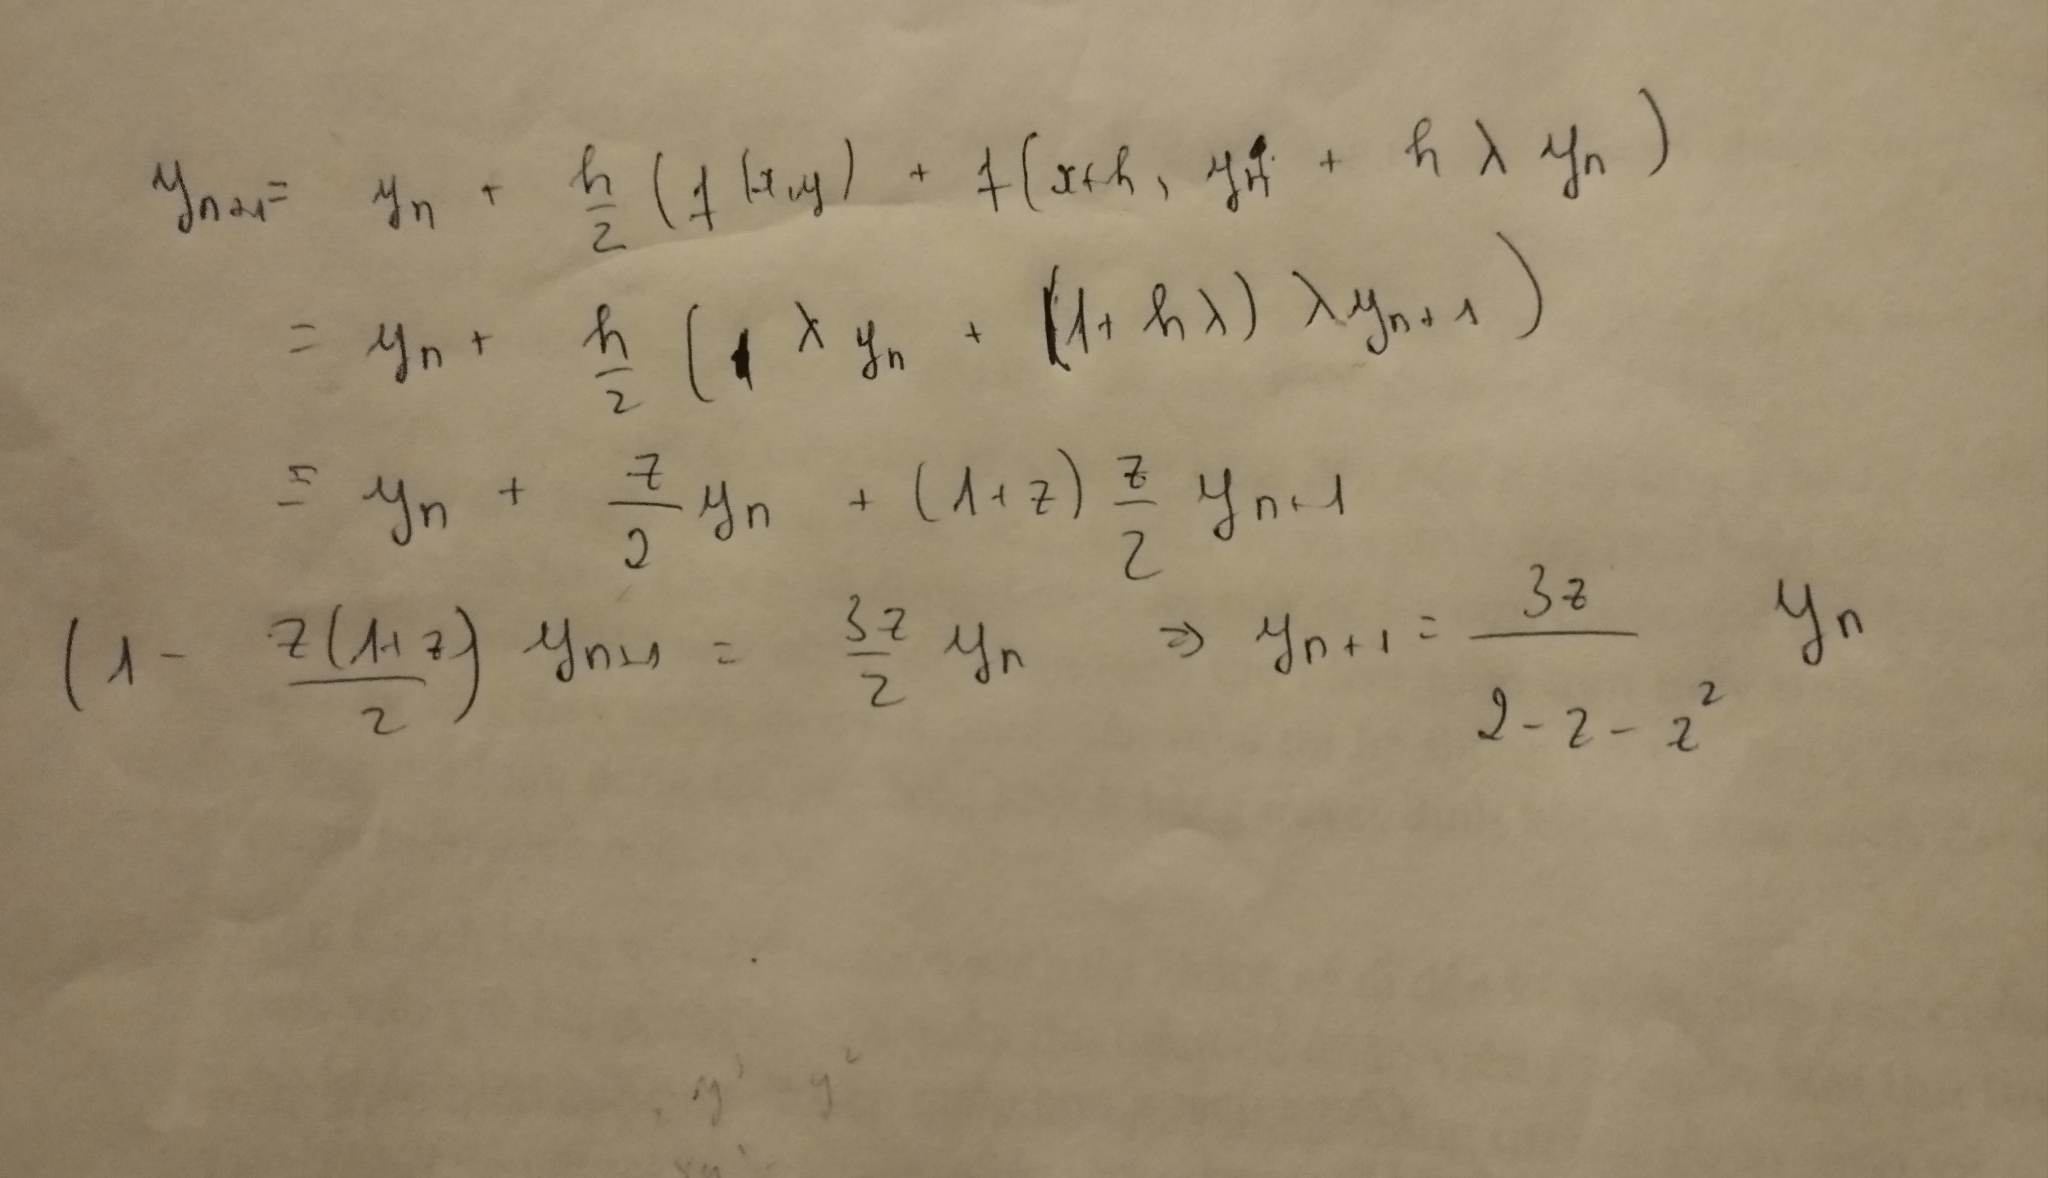 y_{n+1} = y_n + h/2 (f(x,y) + f(x+h, y_n + h λ y_n)
= y_n + h/2 (λ y_n + (1+hλ) λ y_{n+1})
= y_n + z/2 y_n + (1+z) z/2 y_{n+1}
(1 - z(1+z)/2) y_{n+1} = 3z/2 y_n ⇒ y_{n+1} = 3z/(2-z-z²) y_n